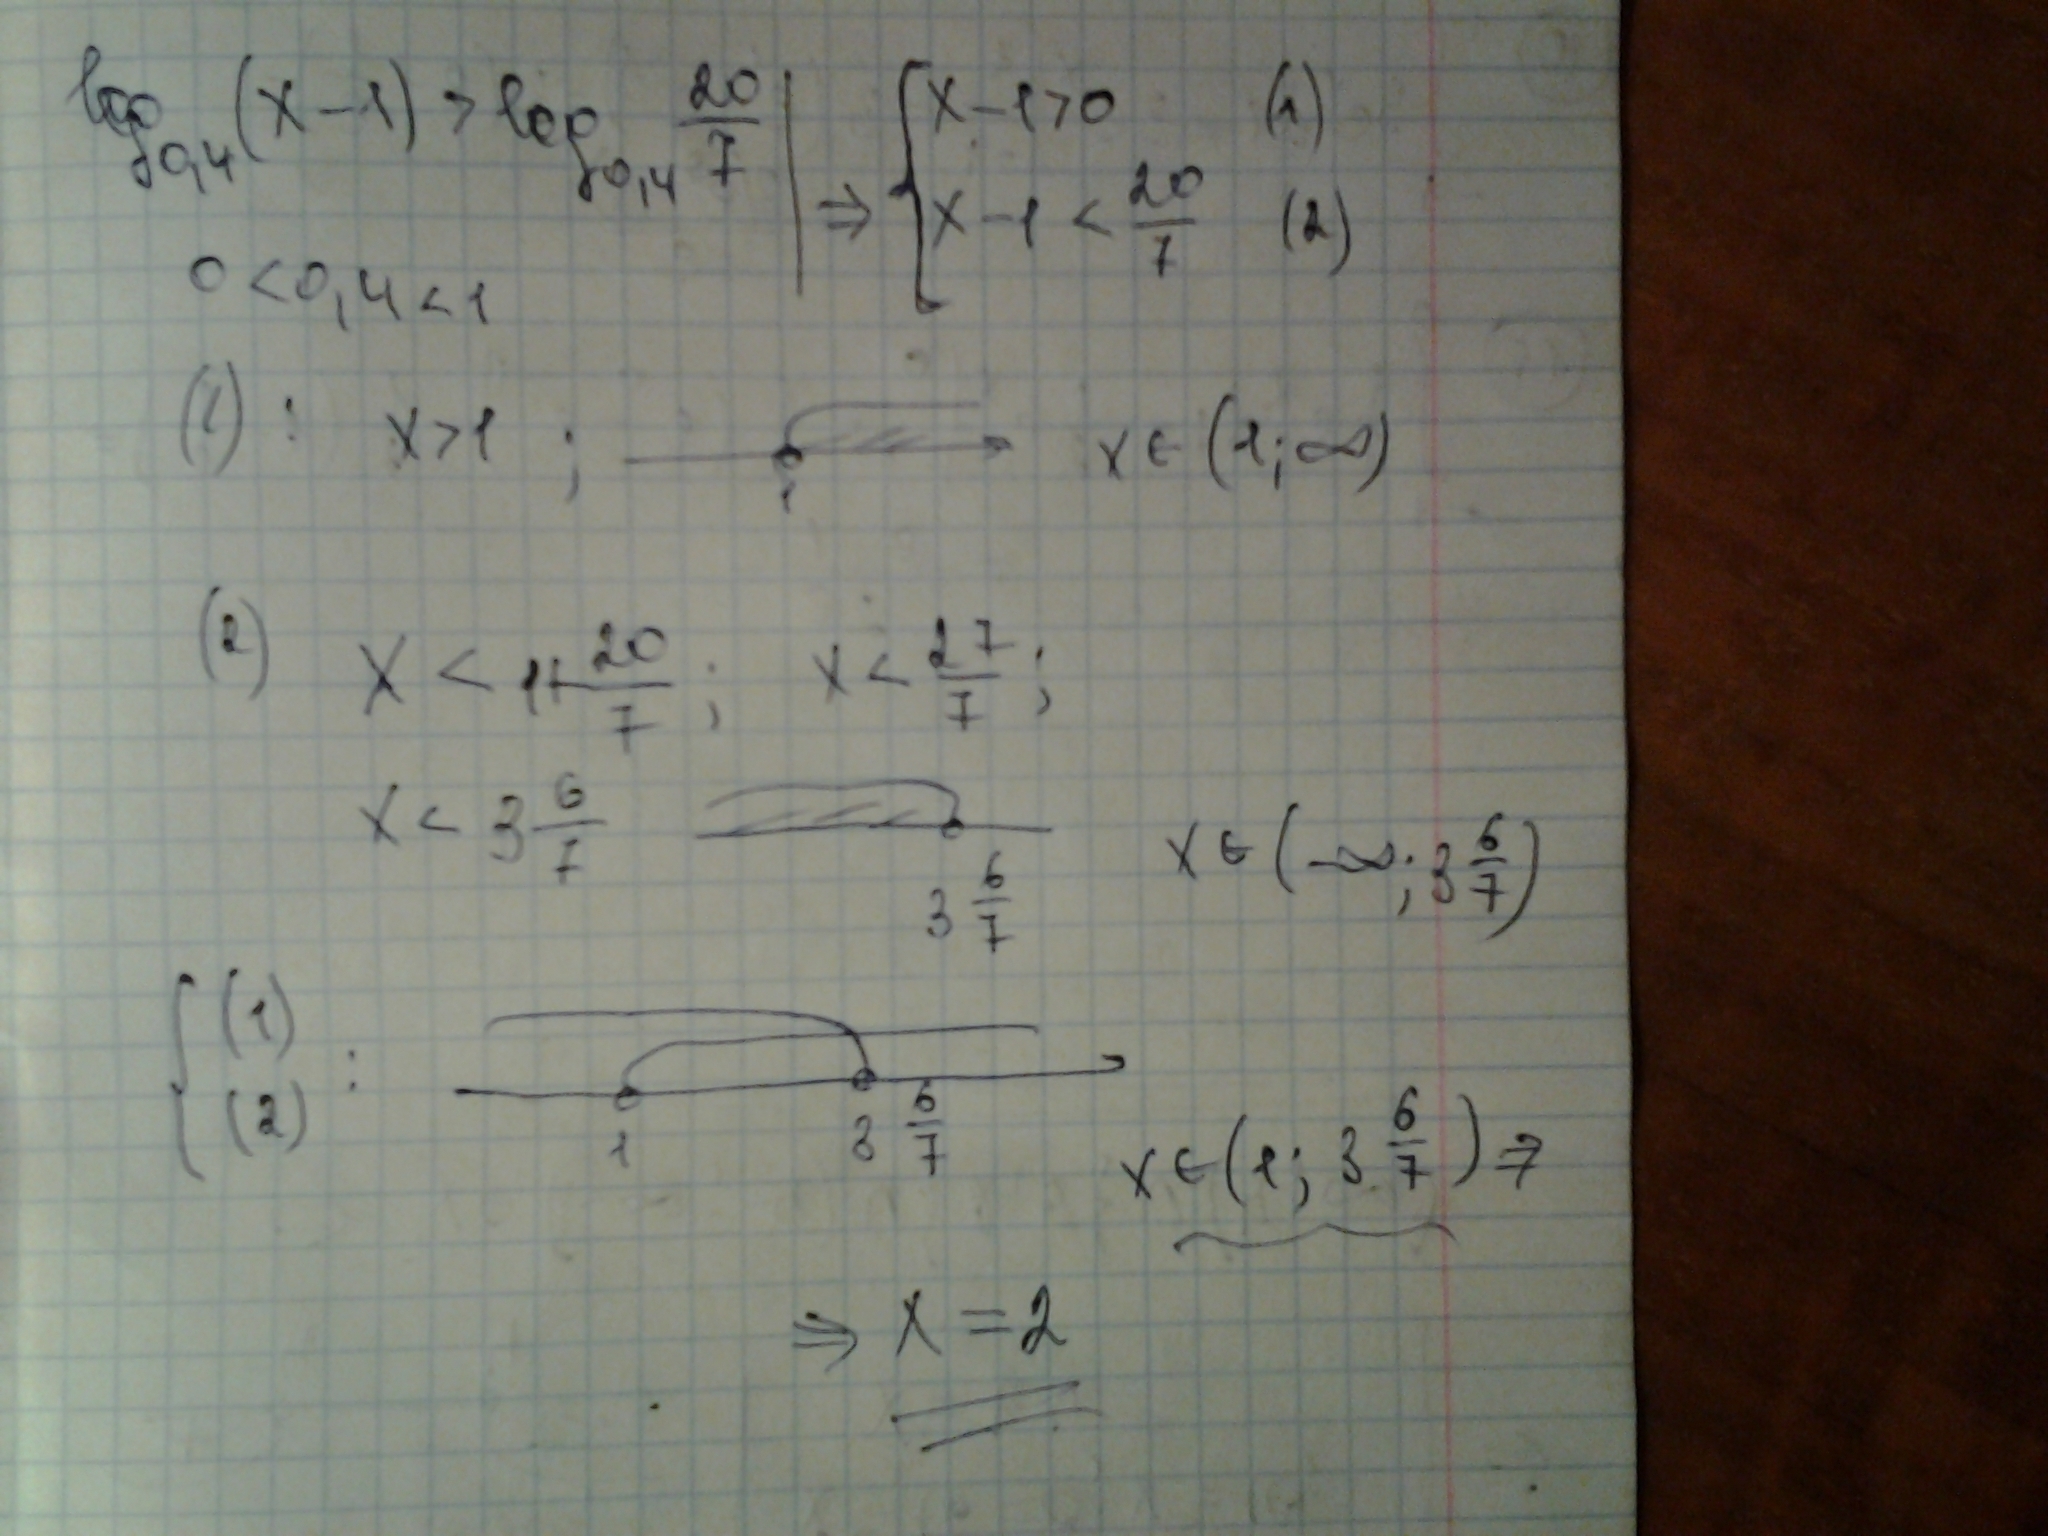 log₀,₄(x-1) > log₀,₄ 20/7 | ⇒ { x-1>0 (1)
x-1 < 20/7 (2)
0<0,4<1
(1): x>1; 1 x∈(1;∞)
(2) x < 1+20/7; x < 27/7;
x < 3 6/7 3 6/7 x∈(-∞; 3 6/7)
{ (1) (2) : 1 3 6/7 x∈(1; 3 6/7) ⇒
⇒ x = 2